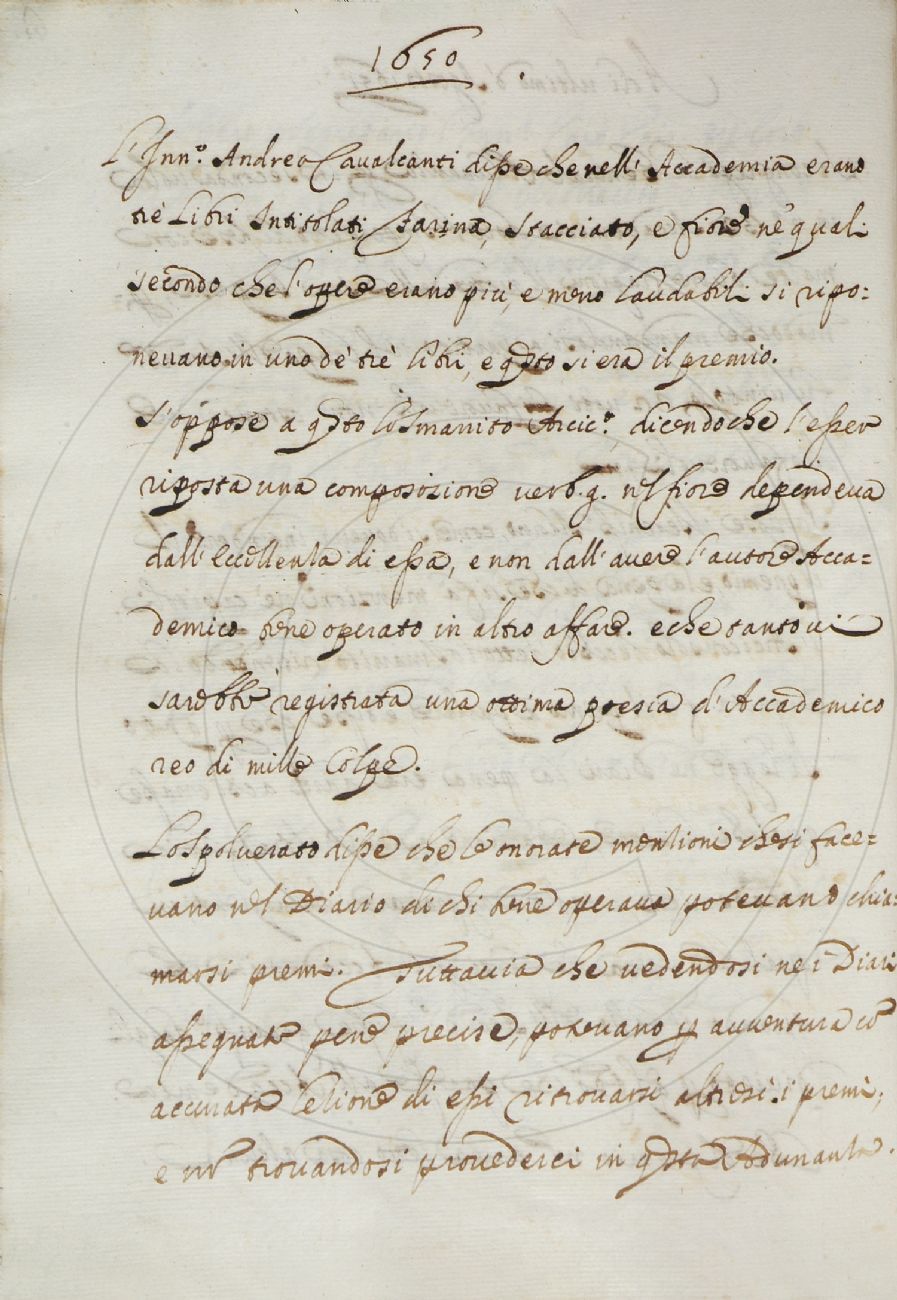 1650
L'Inn.º Andrea Cavalcanti disse che nell'Accademia erano
trè Libri Intitolati Farina, Stacciato, e fiore nè quali
secondo che l'opere erano più, e meno laudabili si ripo=
nevano in uno dè trè libri, e q̃sto si era il premio.
S'oppose a q̃sto lo Smarrito Arcic.º, dicendo che l'esser
riposta una composizione verb. g. nel fiore dependeva
dall'eccellenza di essa, e non dall'avere l'autore Acca=
demico bene operato in altro affare. e che tanto vi
sarebbe registrata una ottima poesia d'Accademico
reo di mille colpe.
Lo Spolverato disse che le onorate menzioni che si face=
vano nel Diario di chi bene operava potevano chia=
marsi premi. Tuttavia che vedendosi ne i Diari
assegnate pene precise, potevano ꝑ avventura cõ
accurata lezione di essi ritrovarsi altresì i premi,
e nõ trovandosi provederci in q̃sta Adunanza.